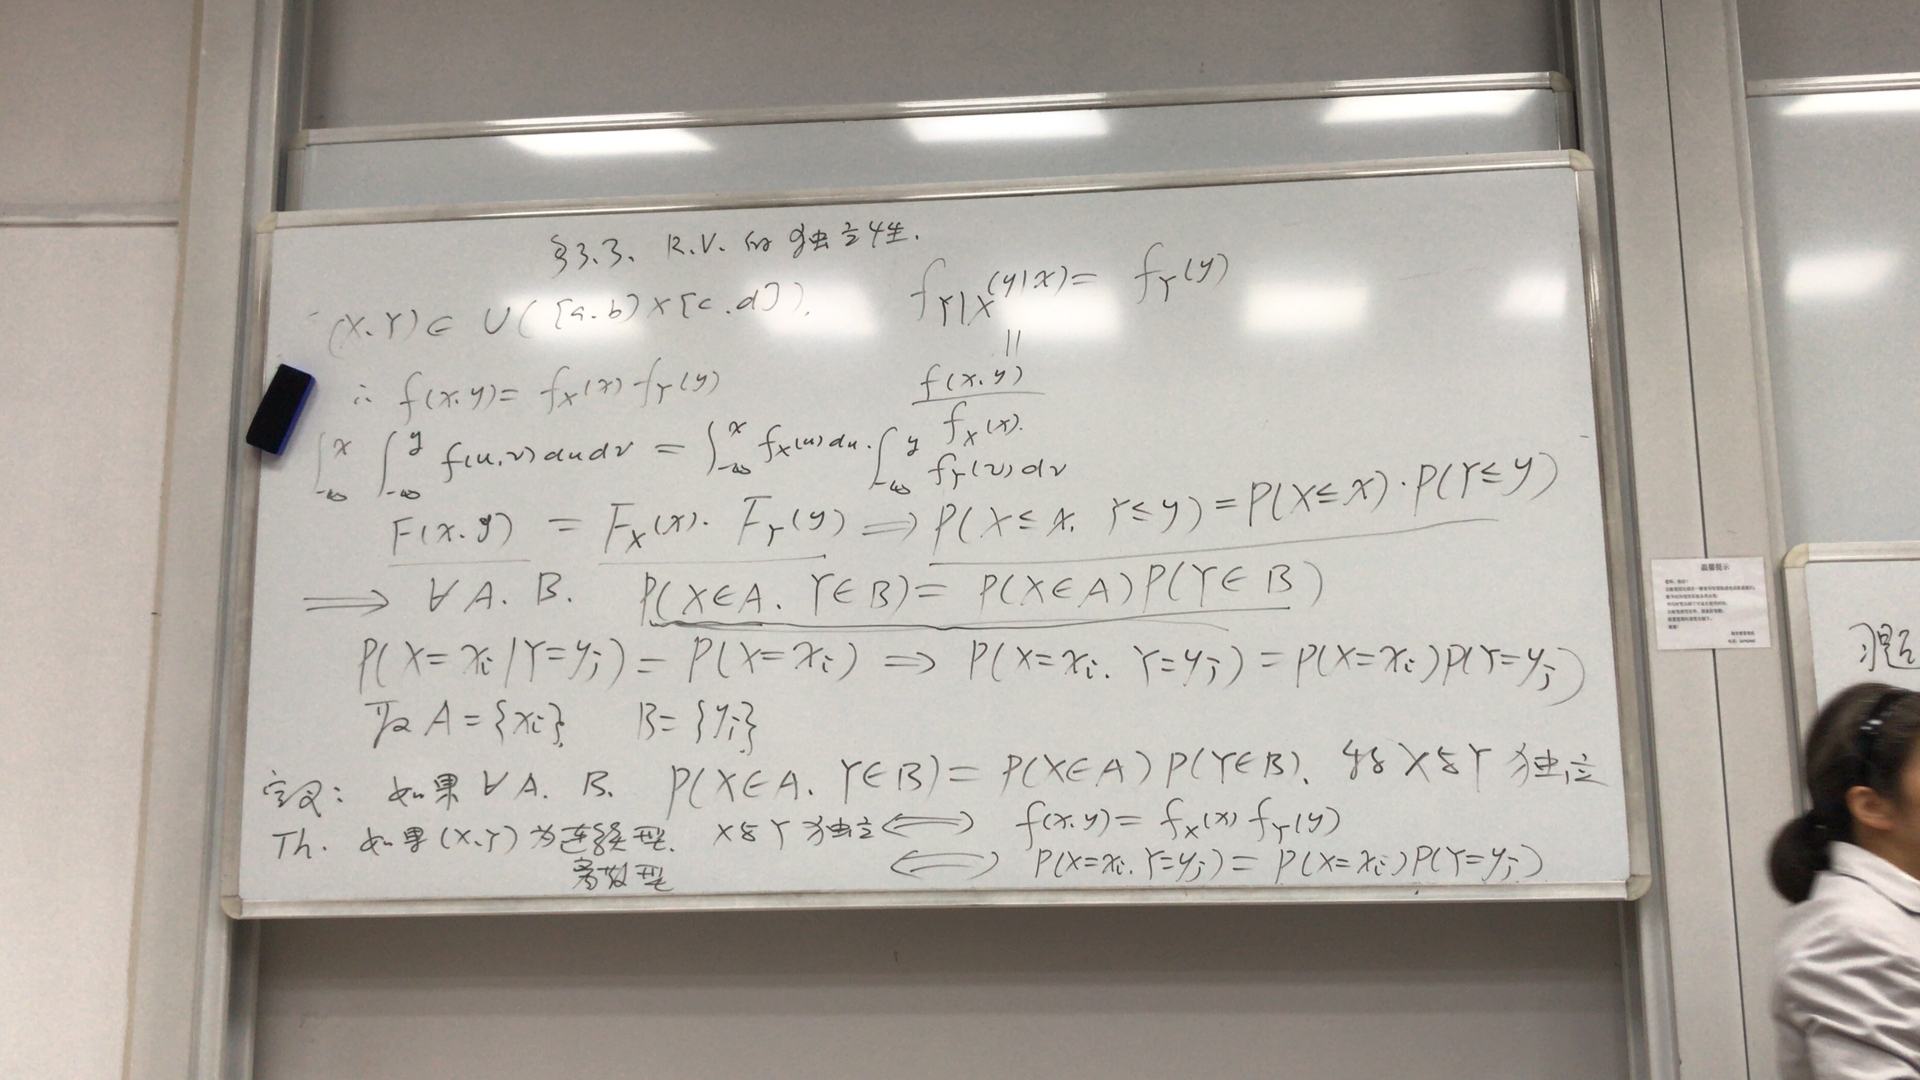 §3.3. R.V. 的独立性.
(X.Y) ∈ U([a.b)×[c.d]).
f_{Y|X}(y|x) = f_Y(y)
||
f(x.y) / f_X(x).
∴ f(x.y) = f_X(x) f_Y(y)
∫_{-∞}^{x} ∫_{-∞}^{y} f(u,v) du dv = ∫_{-∞}^{x} f_X(u) du · ∫_{-∞}^{y} f_Y(v) dv
F(x.y) = F_X(x). F_Y(y) ⇒ P(X≤x. Y≤y) = P(X≤x)·P(Y≤y)
⟹ ∀A. B. P(X∈A. Y∈B) = P(X∈A)P(Y∈B)
P(X=x_i|Y=y_j) = P(X=x_i) ⇒ P(X=x_i. Y=y_j) = P(X=x_i)P(Y=y_j)
取A={x_i} B={y_j}
定义: 如果∀A. B. P(X∈A. Y∈B) = P(X∈A)P(Y∈B). 则 X与Y 独立
Th. 如果(X.Y)为连续型. X与Y独立 ⟺ f(x.y) = f_X(x) f_Y(y)
离散型 ⟺ P(X=x_i. Y=y_j) = P(X=x_i)P(Y=y_j)
温馨提示
习题